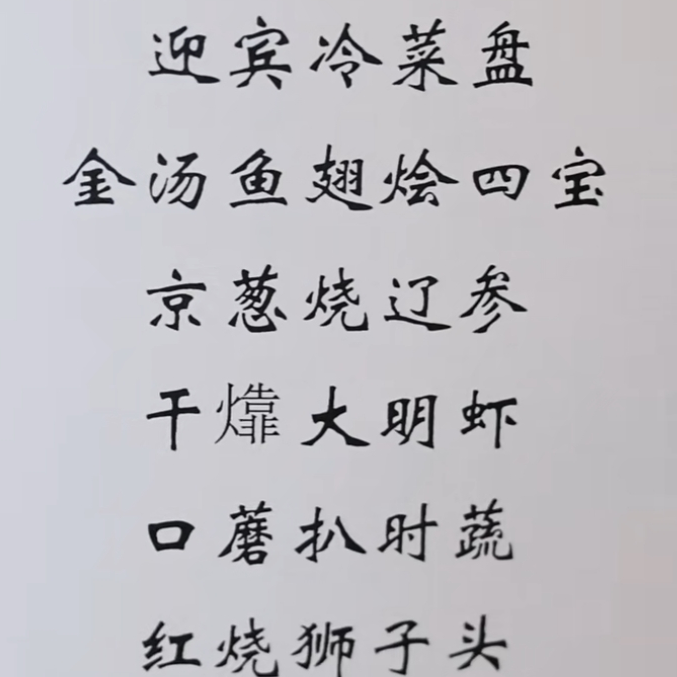 迎宾冷菜盘
金汤鱼翅烩四宝
京葱烧辽参
干㸆大明虾
口蘑扒时蔬
红烧狮子头